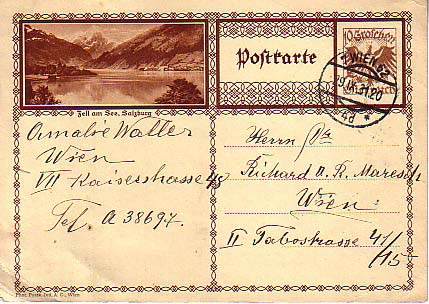 Zell am See, Salzburg
Postkarte
10 Groschen
WIEN
29.IX.31.20
4d *
Amalie Waller
Wien
VII Kaiserstrasse
Tel. A 38697.
Herrn
Richard v. R. Maresch
Wien
II Taborstrasse 41/15
Wien